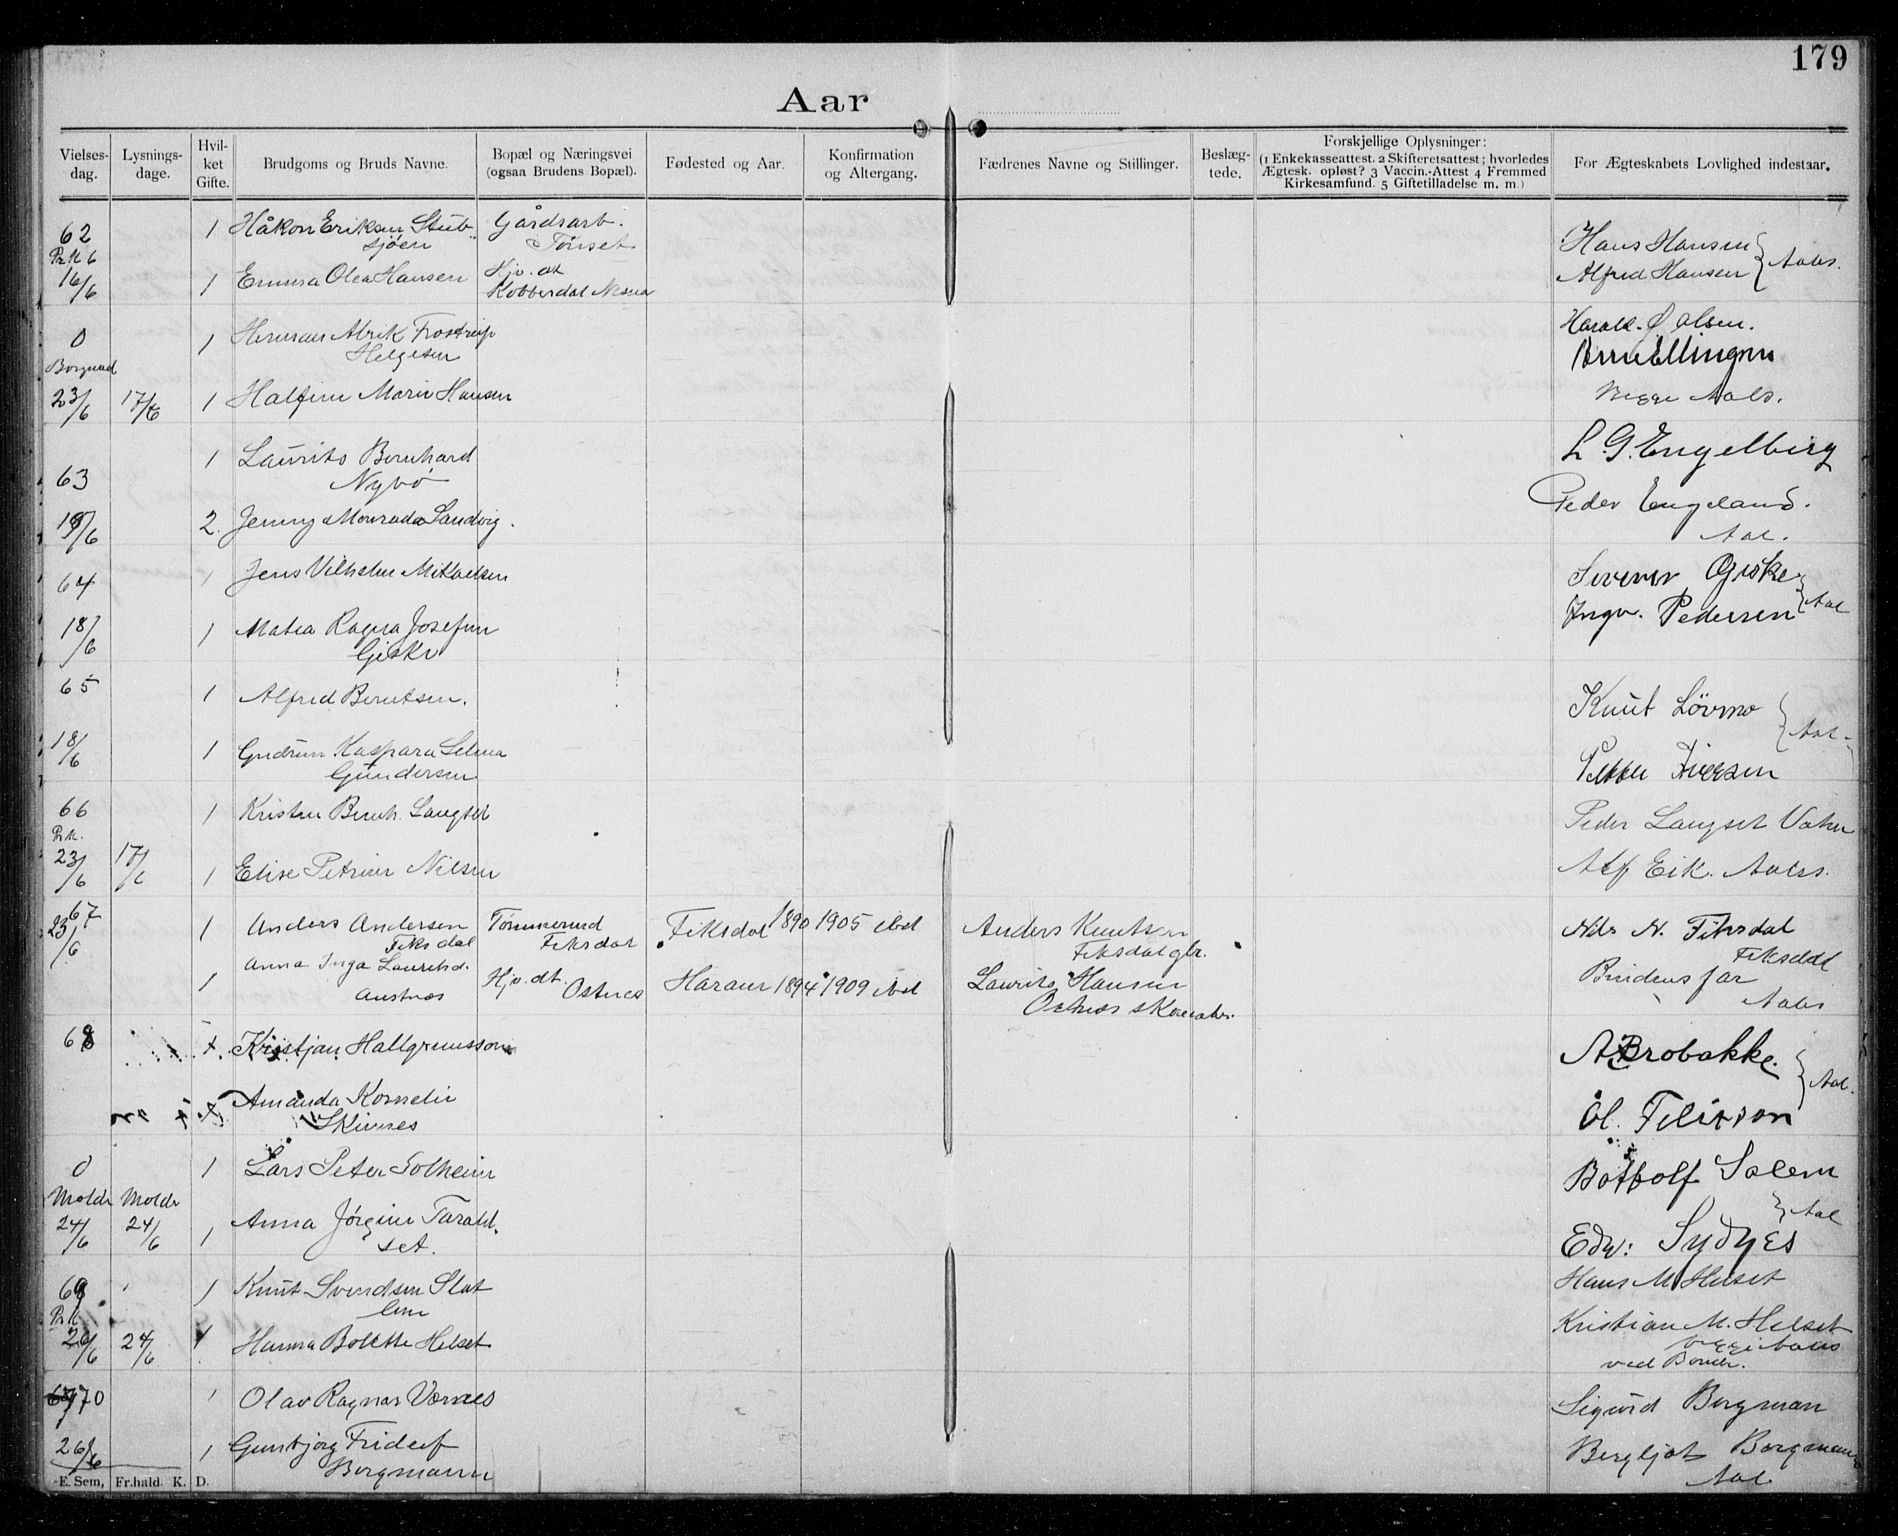 179
Aar
Vielses-dag. Lysnings-dage. Hvil-ket Gifte. Brudgoms og Bruds Navne. Bopæl og Næringsvei (ogsaa Brudens Bopæl). Fødested og Aar. Konfirmation og Altergang. Fædrenes Navne og Stillinger. Beslæg-tede. Forskjellige Oplysninger: (1 Enkekasseattest. 2 Skifteretsattest; hvorledes Ægtesk. opløst? 3 Vaccin.-Attest 4 Fremmed Kirkesamfund. 5 Giftetilladelse m. m.) For Ægteskabets Lovlighed indestaar.
62 1 Håkon Eriksen Stub- Gårdsarb. Hans Hansen
sjøen Tønset
16/6 1 Emma Olea Hansen Hjv. at Alfred Hansen Aales.
Kobberdal Nesna
0 1 Herman Alrik Frostrup Harald. Ø. Olsen.
Helgesen Ellingsen
Borgund
23/6 17/6 1 Halfine Marie Hansen Begge Aales.
63 1 Laurits Bernhard L. G. Engelberg
Nybø
19/6 2. Jenny Monrada Sandvig. Peder Engeland.
Aal.
64 1 Jens Vilhelm Mikaelsen Severin Giske
18/6 1 Matea Ragna Josefine Ingv. Pedersen Aal
Giske
65 1 Alfred Berntsen. Knut Lövmo
18/6 1 Gudrun Kaspara Selma Petter Iversen Aal.
Gundersen
66 1 Kristen Bernh. Langset Peder Langset Vatne
Pr.k.
23/6 17/6 1 Elise Petrine Nilsen Alf Eik. Aales.
67 23/6 1 Anders Andersen Tømmermd Fiksdal 1890 1905 ibd Anders Knutsen Nds N. Fiksdal
Fiksdal Fiksdal Fiksdal gbr. Fiksdal
1 Anna Inga Lauritsd. Hjv. dt. Haram 1894 1909 ibd Laurits Hansen Brudens far
Austnes Ostnes Ostnes skomaker. Aales
68 + Kristjan Hallgrimsson A Brobakke.
+ Amanda Kornelie Ol. Felixson Aal.
Skinnes
0 1 Lars Peter Solheim Botholf Solem
Molde Molde
24/6 24/6 1 Anna Jørgine Tarald- Edv: Sydnes Aal
set.
69 1 Knut Svendsen Slat- Hans M Helset
lem
Pr.k
26/6 24/6 1 Hanna Bolette Helset Kristian M. Helset
begge Aales
ved Bonde.
70 1 Olav Ragnar Værnes Sigurd Borgman
26/6 1 Gunbjørg Fridelf Bergljot Borgmann
Borgmann Aal.
E. Sem, Fr.hald. K. D.